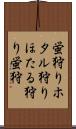 蛍狩りホ
タル狩り
ほたる狩
り螢狩